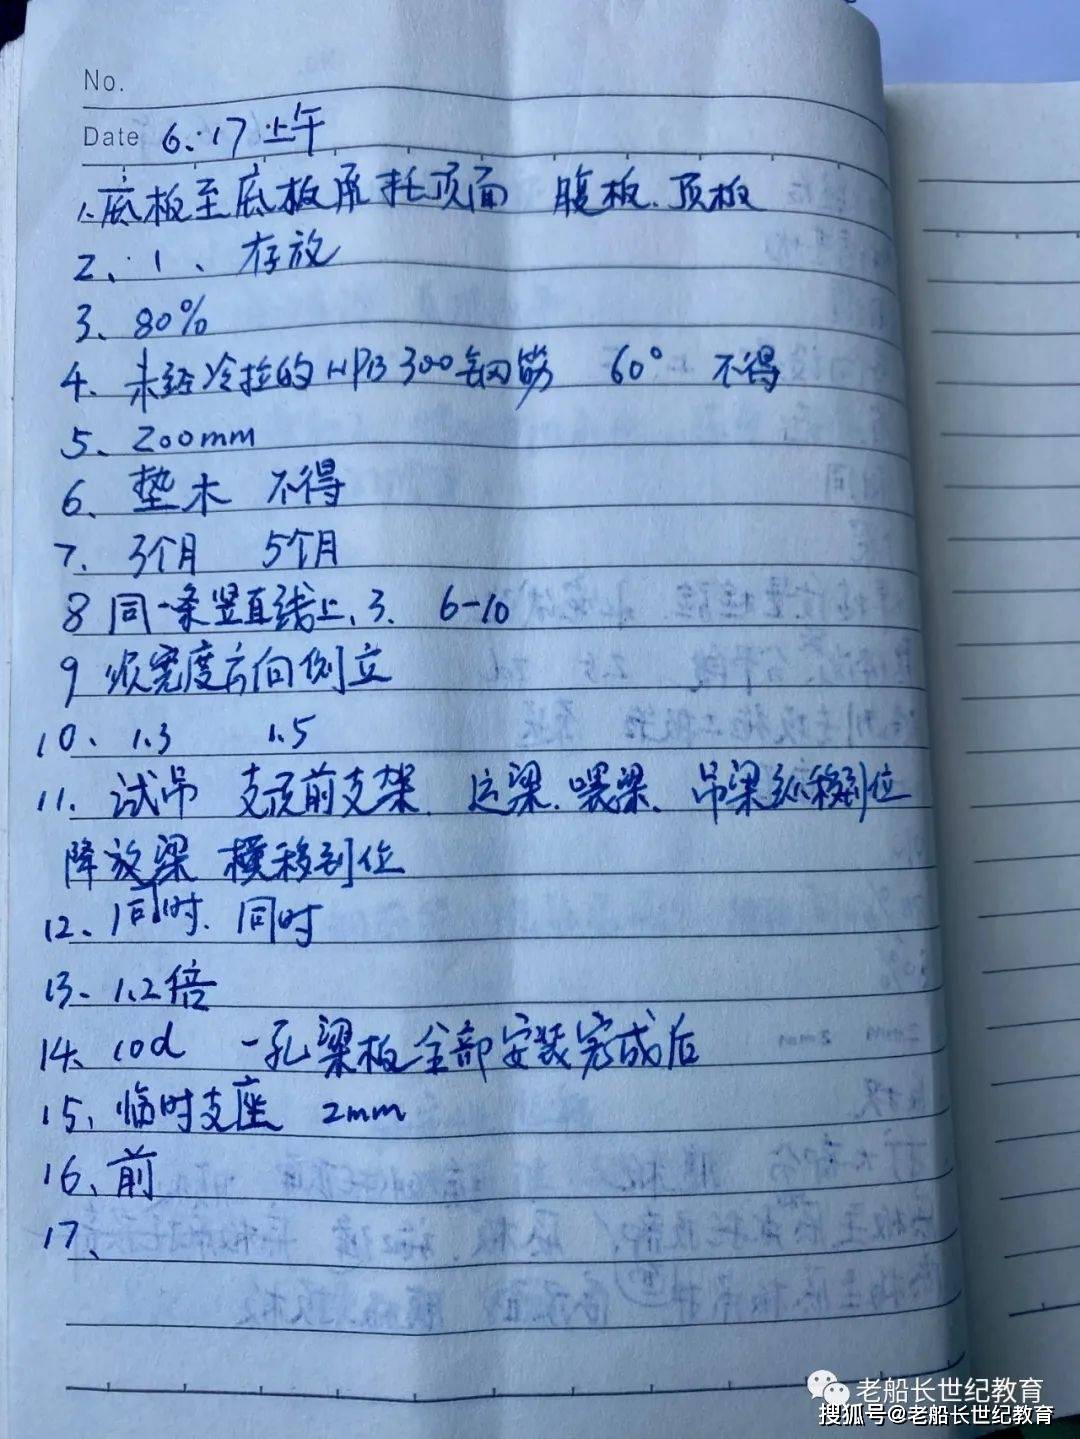 No.
Date 6.17上午
1.底板至底板承托顶面 腹板、顶板
2、1、存放
3、80%
4、未经冷拉的HPB300钢筋 60° 不得
5、200mm
6、垫木 不得
7、3个月 5个月
8 同一条竖直线上、3、6-10
9 顺宽度方向侧立
10、1.3 1.5
11、试吊 支承前支架、运梁、喂梁、吊梁纵移到位
降放梁 横移到位
12、同时、同时
13、1.2倍
14、10d 一孔梁板全部安装完成后
15、临时支座 2mm
16、前
17、
老船长世纪教育
搜狐号@老船长世纪教育